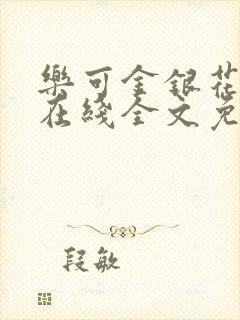 樂可金銀花
在綫全文免
段敏